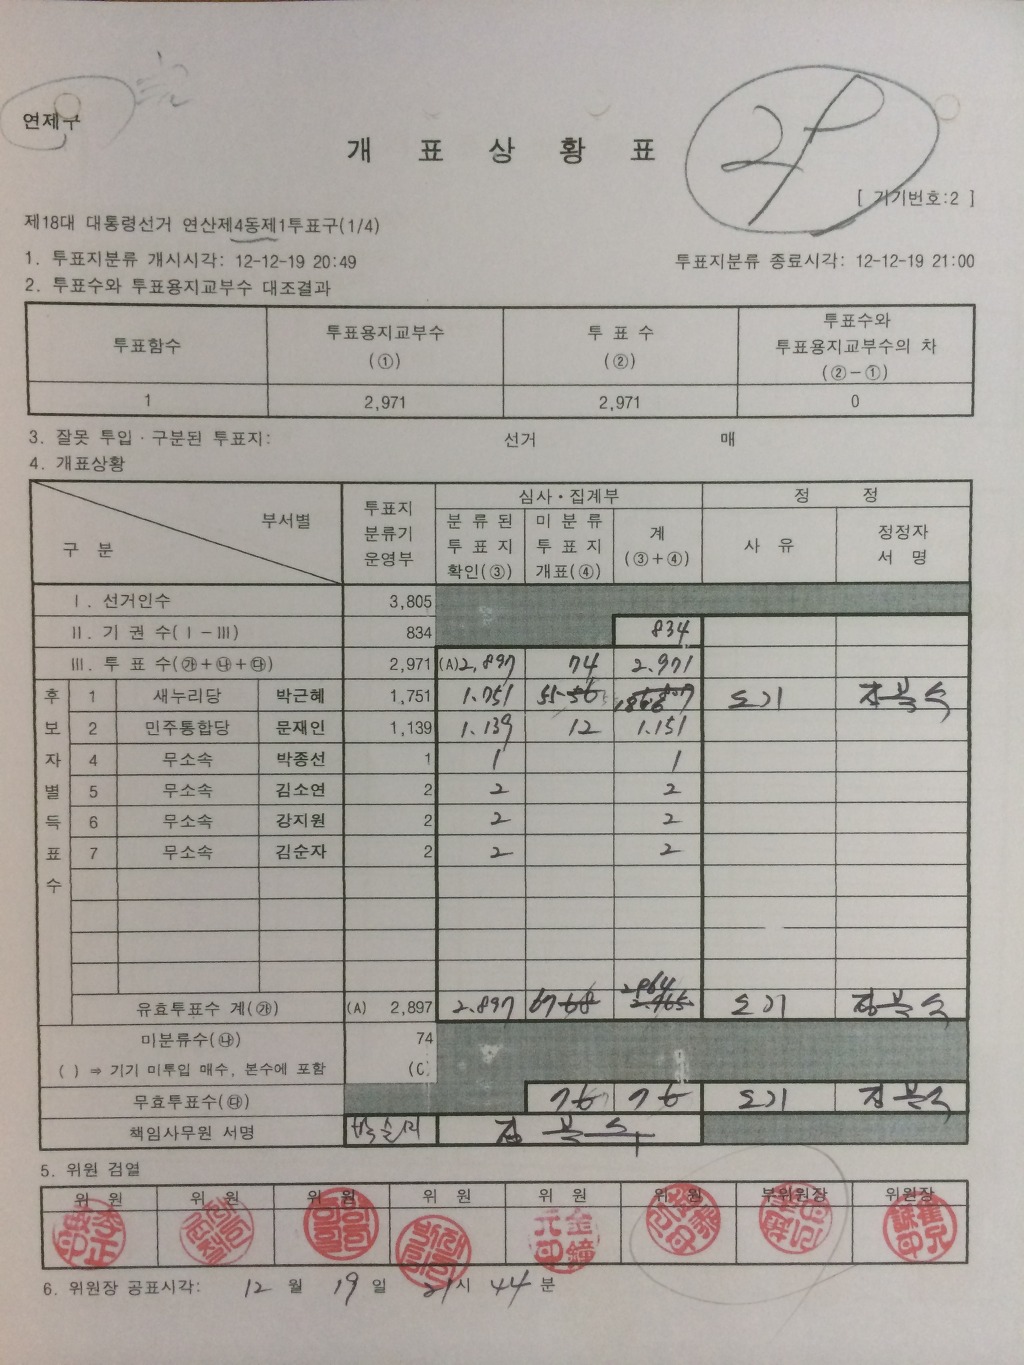 연제구
개 표 상 황 표
[ 기기번호:2 ]
제18대 대통령선거 연산제4동제1투표구(1/4)
1. 투표지분류 개시시각: 12-12-19 20:49 투표지분류 종료시각: 12-12-19 21:00
2. 투표수와 투표용지교부수 대조결과
투표함수 투표용지교부수 (①) 투 표 수 (②) 투표수와 투표용지교부수의 차 (②-①)
1 2,971 2,971 0
3. 잘못 투입·구분된 투표지: 선거 매
4. 개표상황
구 분 부서별 투표지 분류기 운영부 심사·집계부 정 정
분 류 된 투 표 지 확인(③) 미 분 류 투 표 지 개표(④) 계 (③+④) 사 유 정정자 서 명
Ⅰ. 선거인수 3,805
Ⅱ. 기 권 수(Ⅰ-Ⅲ) 834 834
Ⅲ. 투 표 수(㉮+㉯+㉰) 2,971 (A)2,897 74 2.971
후보자별득표수
1 새누리당 박근혜 1,751 1.751 55 56 오기
2 민주통합당 문재인 1,139 1.139 12 1.151
4 무소속 박종선 1 1 1
5 무소속 김소연 2 2 2
6 무소속 강지원 2 2 2
7 무소속 김순자 2 2 2
유효투표수 계(㉮) (A) 2,897 2.897 67 68 2964 2.965 오기
미분류수(㉯) 74
( ) ⇒ 기기 미투입 매수, 본수에 포함 (C)
무효투표수(㉰) 오기
책임사무원 서명
5. 위원 검열
위 원 위 원 위 원 위 원 위 원 위 원 부위원장 위원장
6. 위원장 공표시각: 12 월 19 일 21 시 44 분